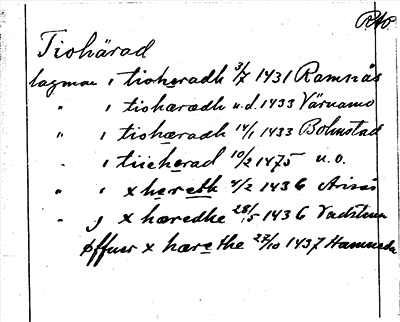 RAp.
Tiohärad
lagman i tiohæradh 3/7 1431 Ramnäs
" i tiohæradh u.d. 1433 Värnamo
" i tiohæradh 14/1 1433 Bolmstad
" i tiieherad 10/2 1475 u.o.
" i x hereth 4/2 1436
" j x hæredhe 28/5 1436 Vadstena
øffuer x hærethe 27/10 1437 Hamneda